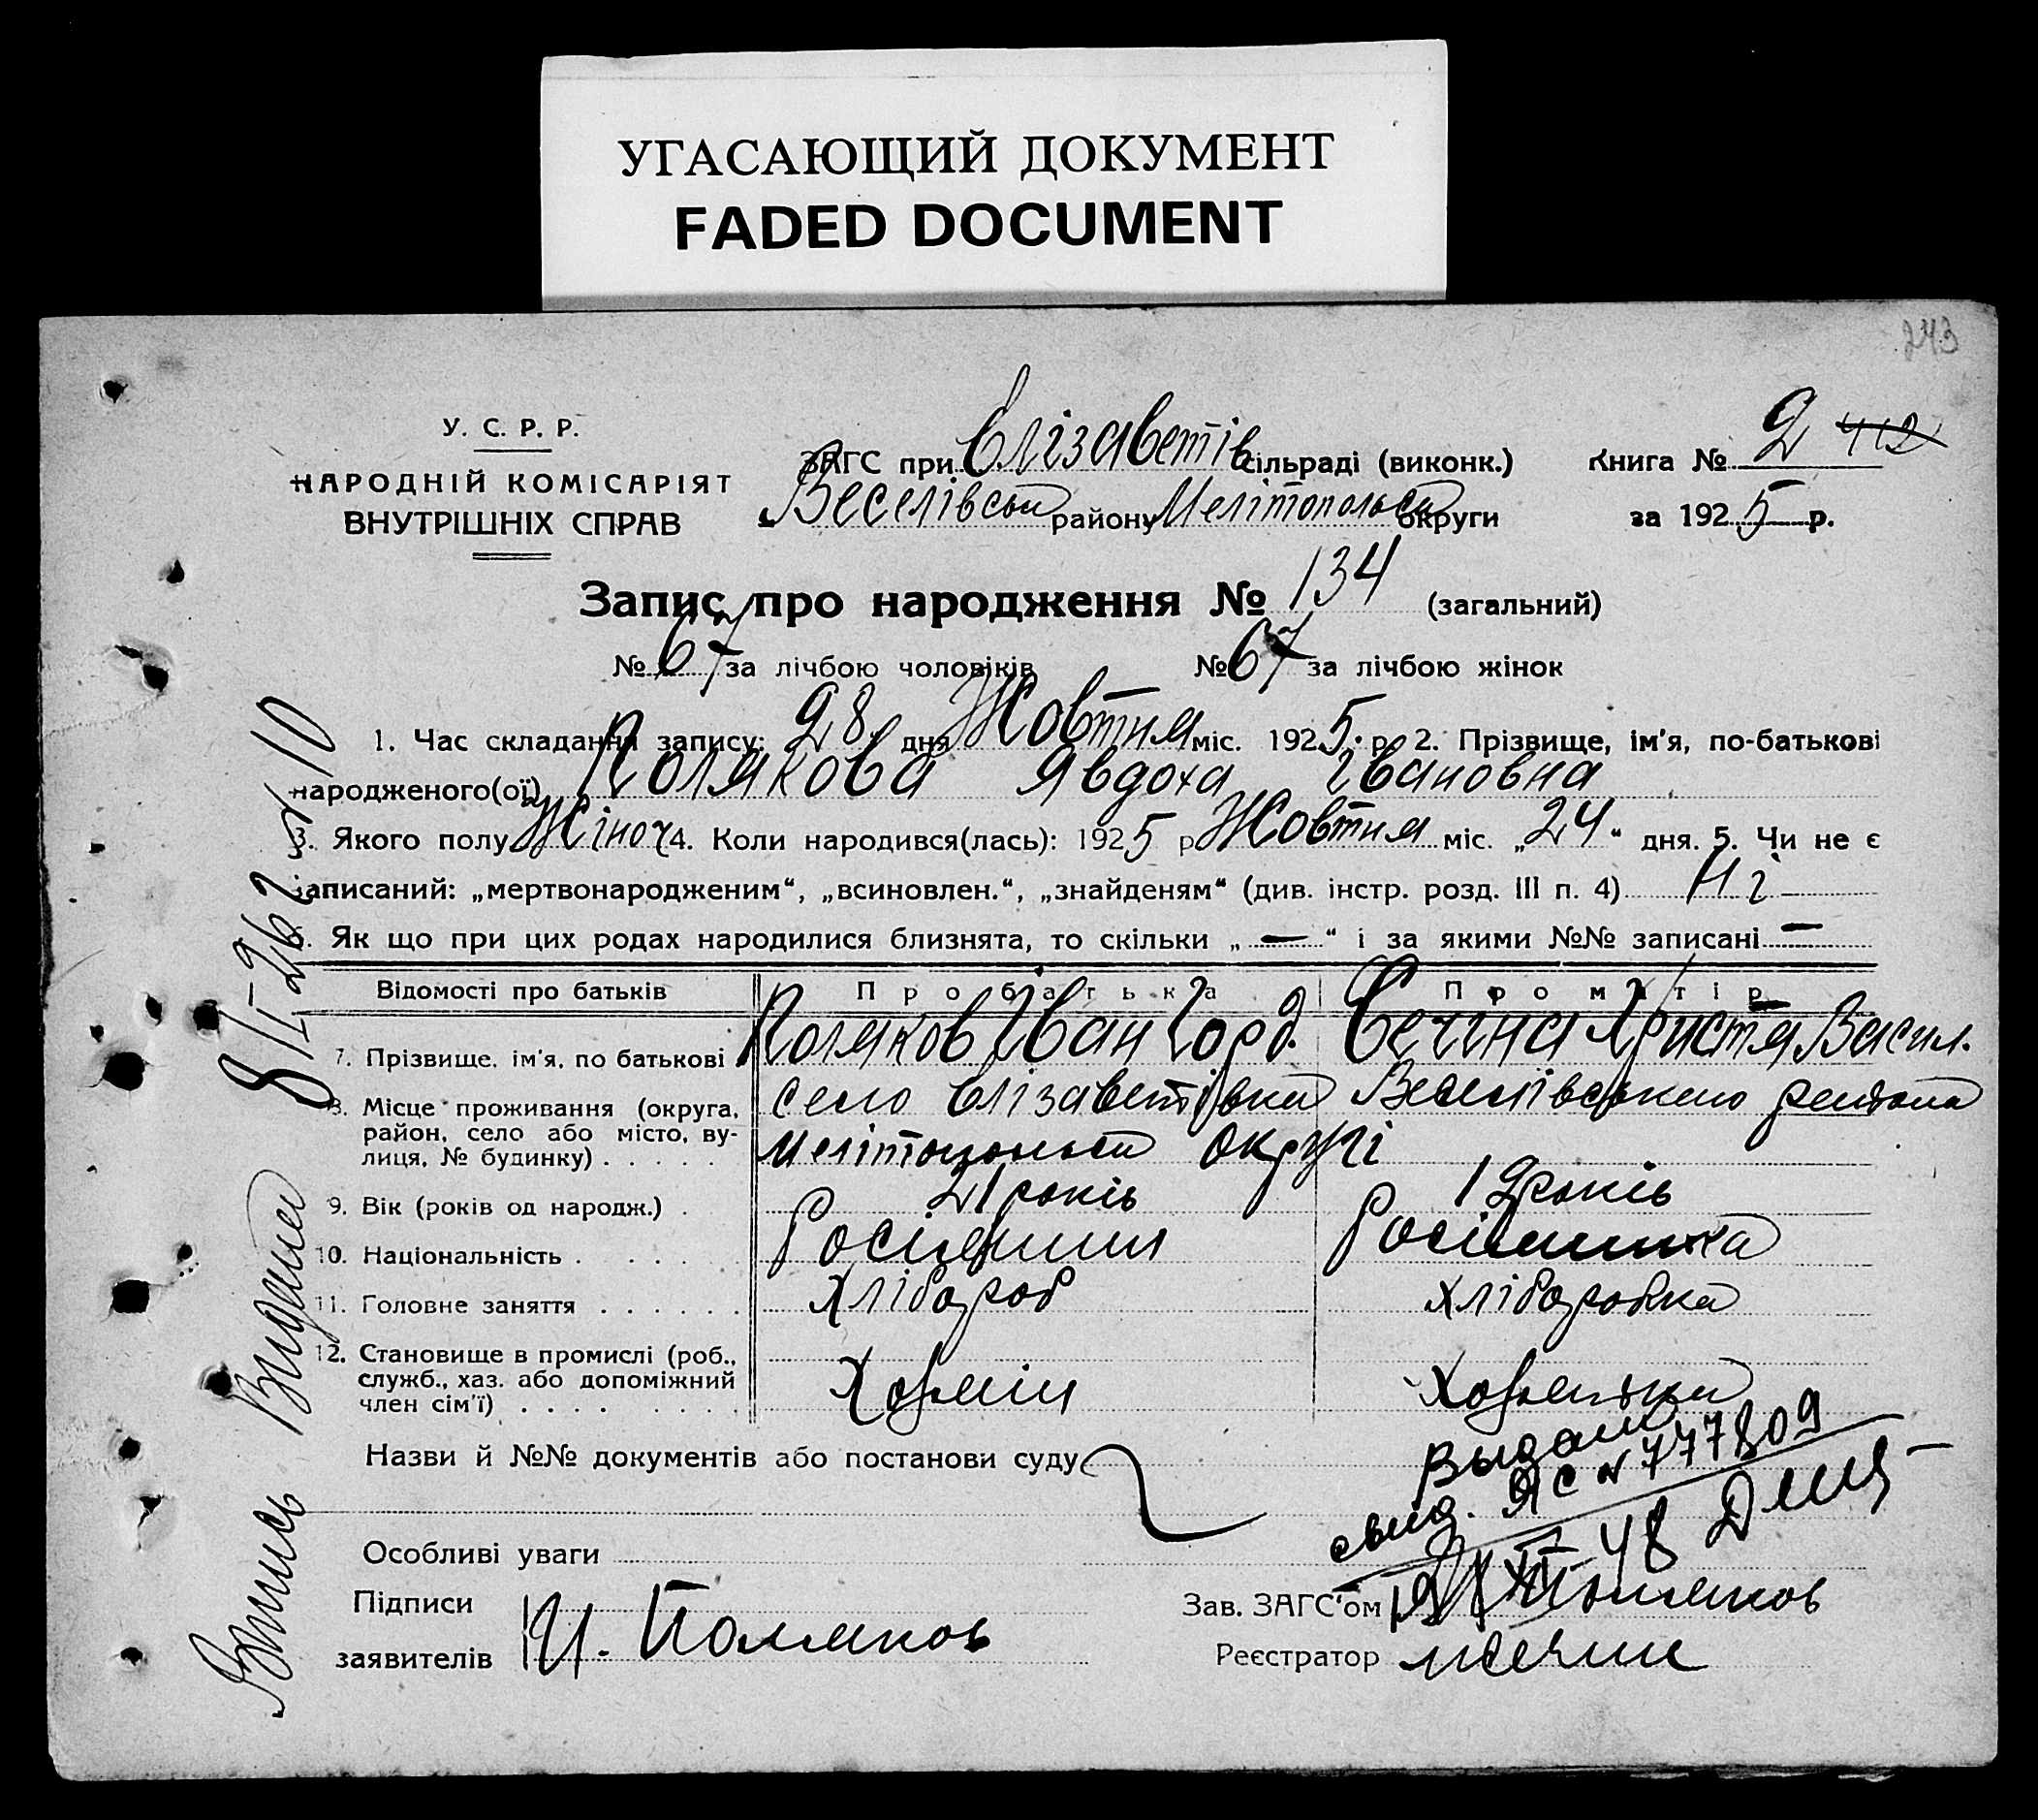 УГАСАЮЩИЙ ДОКУМЕНТ
FADED DOCUMENT
243
У. С. Р. Р.
НАРОДНІЙ КОМІСАРІЯТ
ВНУТРІШНІХ СПРАВ
ЗАГС при Єлізаветів сільраді (виконк.)
Веселівськ району Мелітопольськ округи
Книга № 2 412
за 1925 р.
Запис про народження № 134 (загальний)
№ 67 за лічбою чоловіків № 67 за лічбою жінок
1. Час складання запису: 28 дня Жовтня міс. 1925 р. 2. Прізвище, ім'я, по-батькові
народженого(ої) Полякова Явдоха Івановна
3. Якого полу Жіноч 4. Коли народився(лась): 1925 р Жовтня міс. „24“ дня. 5. Чи не є
записаний: „мертвонародженим“, „всиновлен.“, „знайденям“ (див. інстр. розд. III п. 4) Ні
6. Як що при цих родах народилися близнята, то скільки „—“ і за якими №№ записані —
Відомості про батьків Про батька Про матір
7. Прізвище, ім'я, по батькові Поляков Іван Горд. Христя Васил.
8. Місце проживання (округа, район, село або місто, вулиця, № будинку) село Єлізаветівка Веселівського района
Мелітопольськ округі
9. Вік (років од народж.) 21 років 19 років
10. Національність Росіянин Росіянинка
11. Головне заняття Хлібороб Хліборобка
12. Становище в промислі (роб., служб., хаз. або допоміжний член сім'ї) Хозяїн Хозяйка
Назви й №№ документів або постанови суду
Выдано
свид. ЯС № 777809
21 XII 48
Особливі уваги
Підписи
заявителів И. Поляков
Зав. ЗАГС'ом Поляков
Реєстратор
Випись Видана 8/I 26